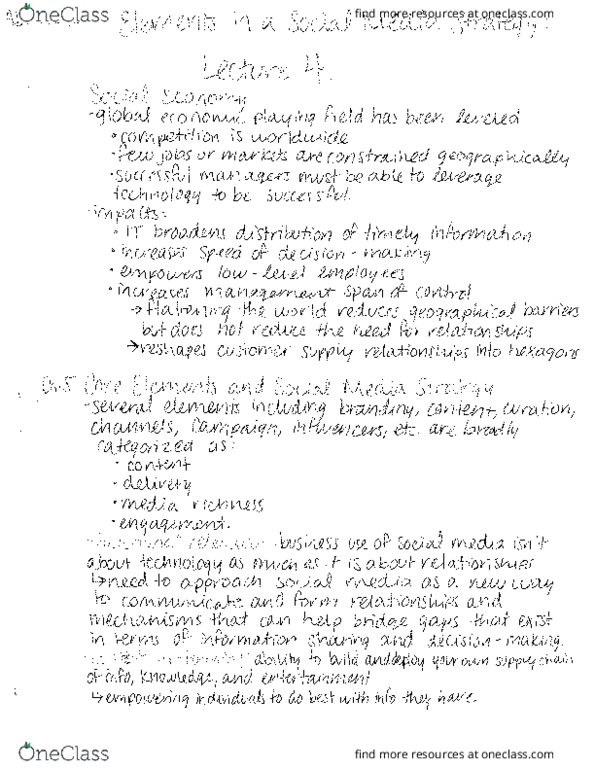 OneClass
find more resources at oneclass.com
Elements in a Social Media Strategy
Lecture 4.
Social Economy
-global economic playing field has been leveled
• competition is worldwide
• few jobs or markets are constrained geographically
• successful managers must be able to leverage
technology to be successful.
-impacts:
• IT broadens distribution of timely information
• increases speed of decision-making
• empowers low-level employees
• increases management span of control
→ flattening the world reduces geographical barriers
but does not reduce the need for relationships
→ reshapes customer supply relationships into hexagons
Core Elements and Social Media Strategy
-several elements including branding, content, curation,
channels, campaign, influencers, etc. are broadly
categorized as:
• content
• delivery
• media richness
• engagement.
business use of social media isn't
about technology as much as it is about relationships
↳ need to approach social media as a new way
to communicate and form relationships and
mechanisms that can help bridge gaps that exist
in terms of information sharing and decision-making.
ability to build and deploy your own supply chain
of info, knowledge, and entertainment
↳ empowering individuals to do best with info they have.
OneClass
find more resources at oneclass.com